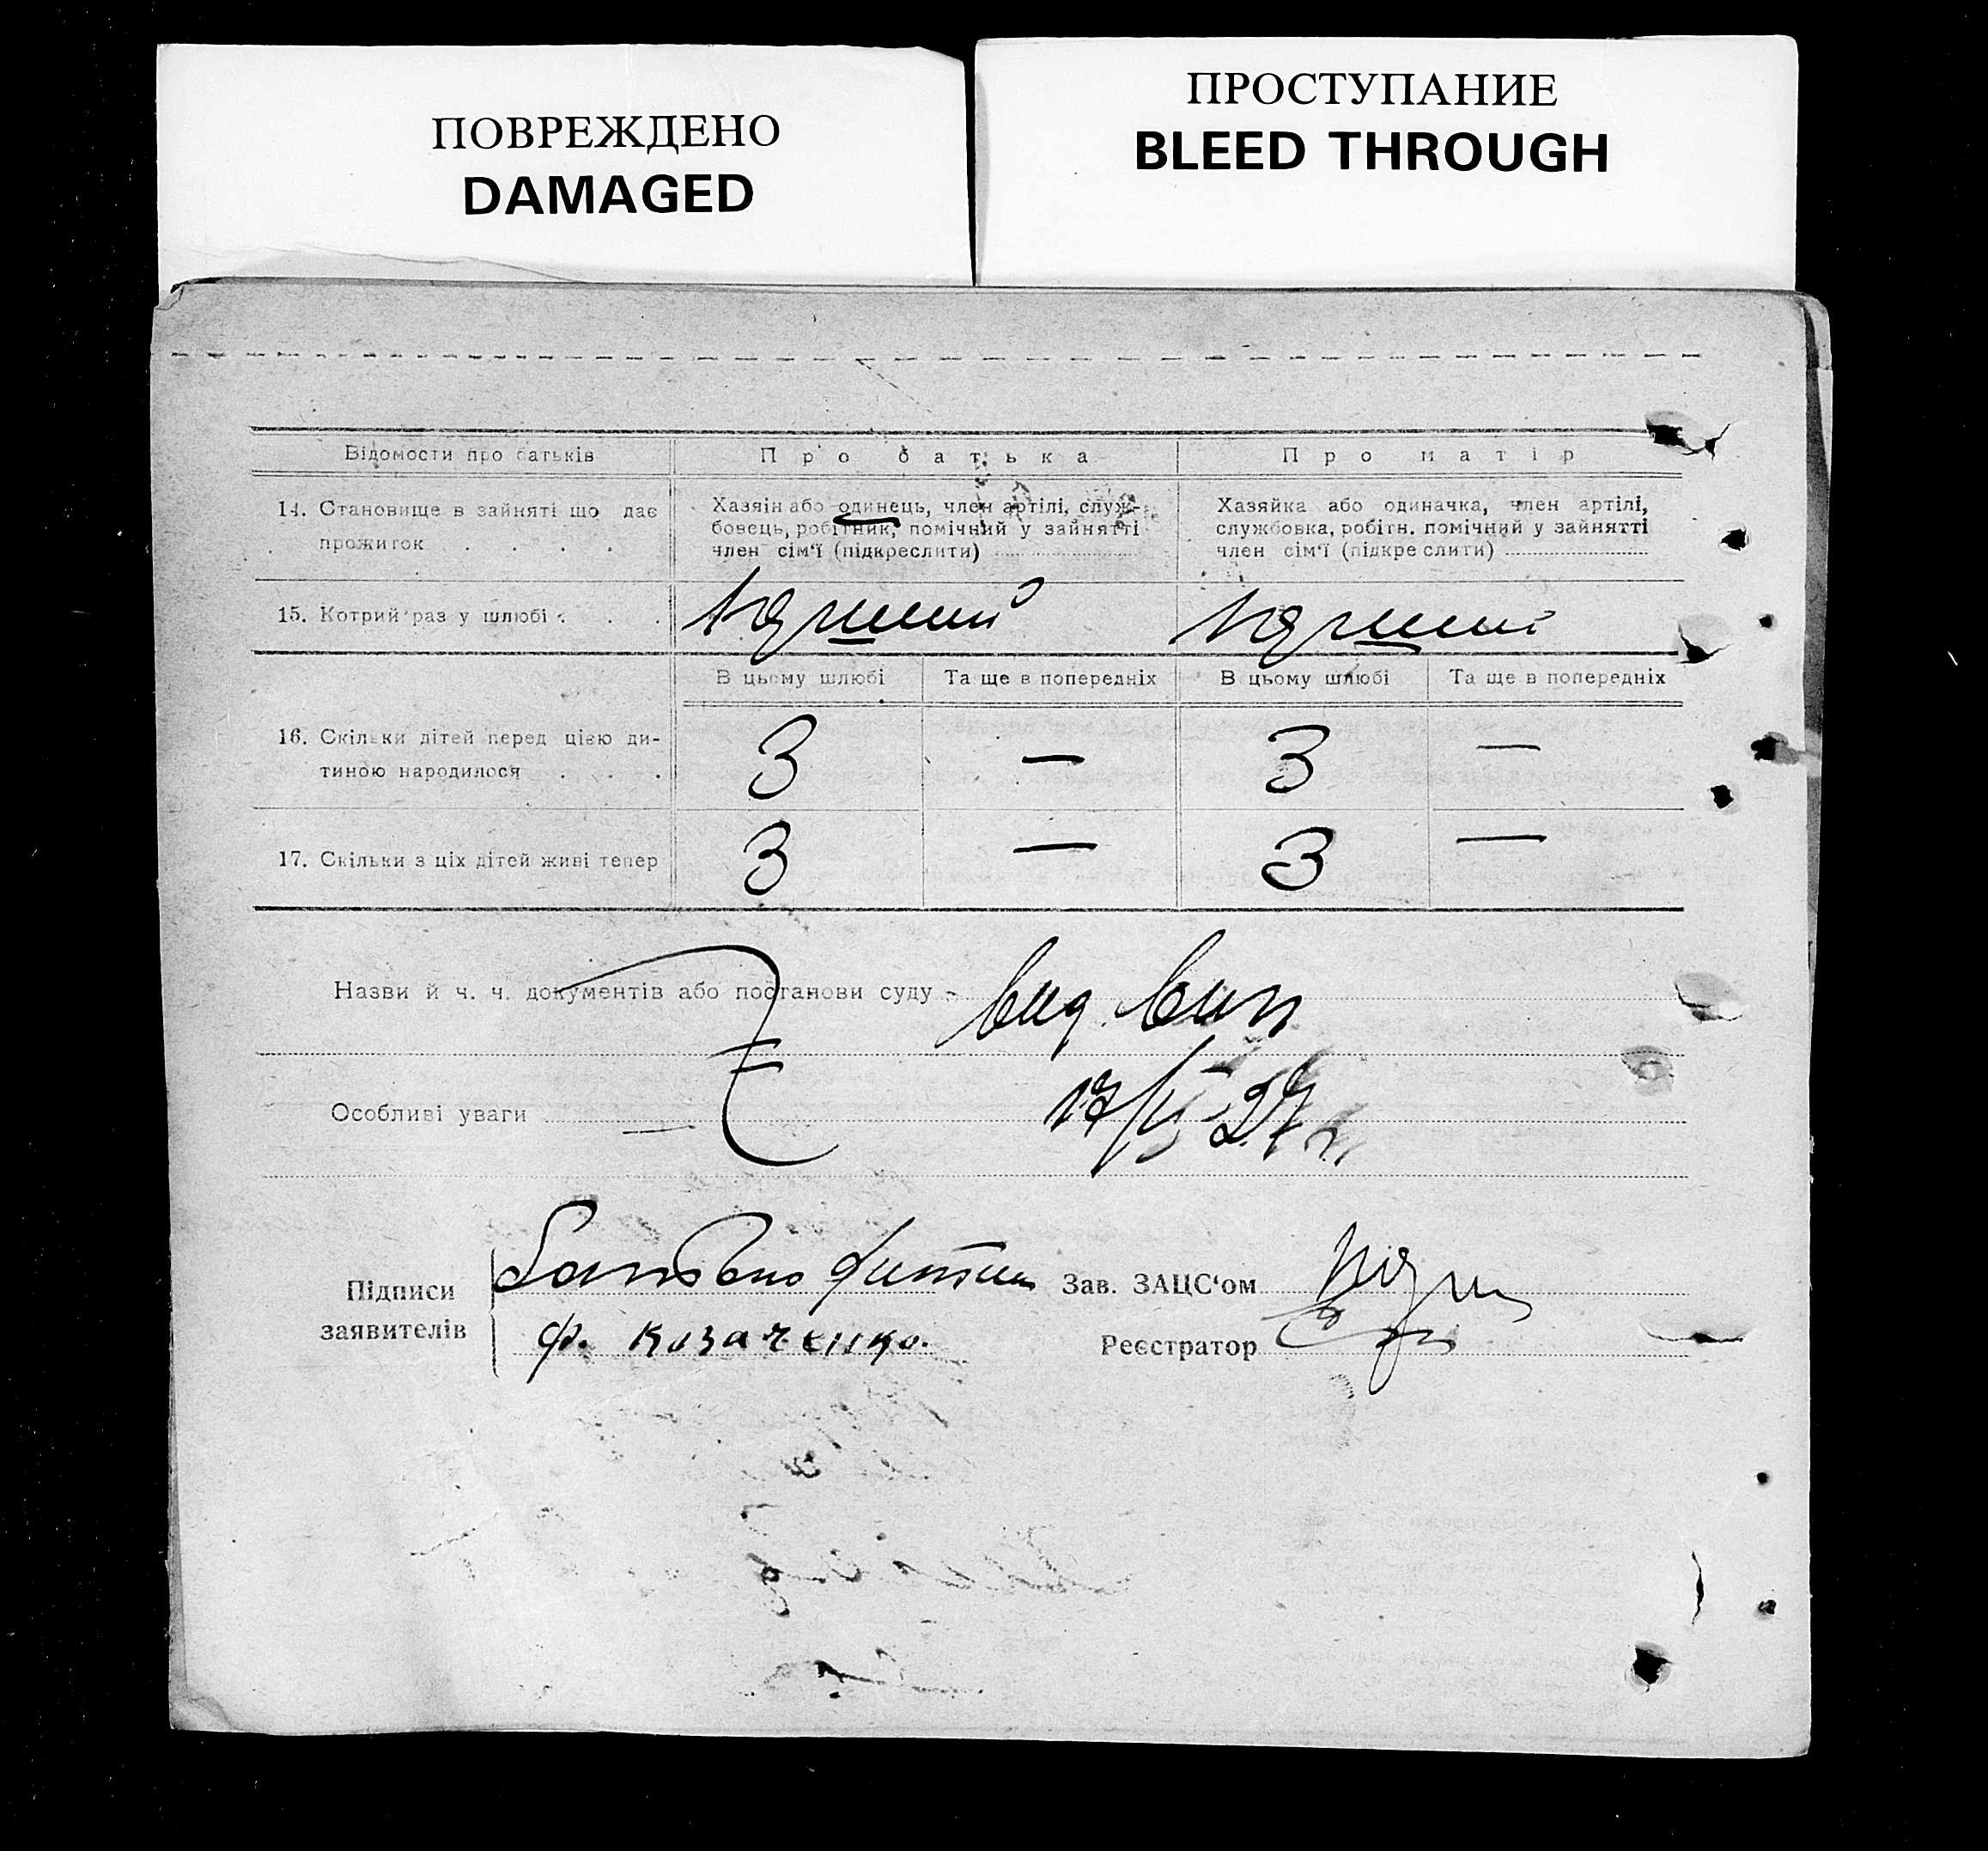 ПОВРЕЖДЕНО
DAMAGED
ПРОСТУПАНИЕ
BLEED THROUGH
Відомости про батьків
Про батька
Про матір
14. Становище в зайняті що дає
прожиток . . . .
Хазяін або одинець, член артілі, служ-
бовець, робітник, помічний у зайнятті
член сім'ї (підкреслити)
Хазяйка або одиначка, член артілі,
службовка, робітн. помічний у зайнятті
член сім'ї (підкреслити)
15. Котрий раз у шлюбі . . .
В цьому шлюбі
Та ще в попередніх
В цьому шлюбі
Та ще в попередніх
16. Скільки дітей перед цією ди-
тиною народилося . . .
3 — 3 —
17. Скільки з ціх дітей живі тепер
3 — 3 —
Назви й ч. ч. документів або постанови суду
Особливі уваги
Підписи
заявителів
Зав. ЗАЦС'ом
Ф. Козаченко.
Реєстратор